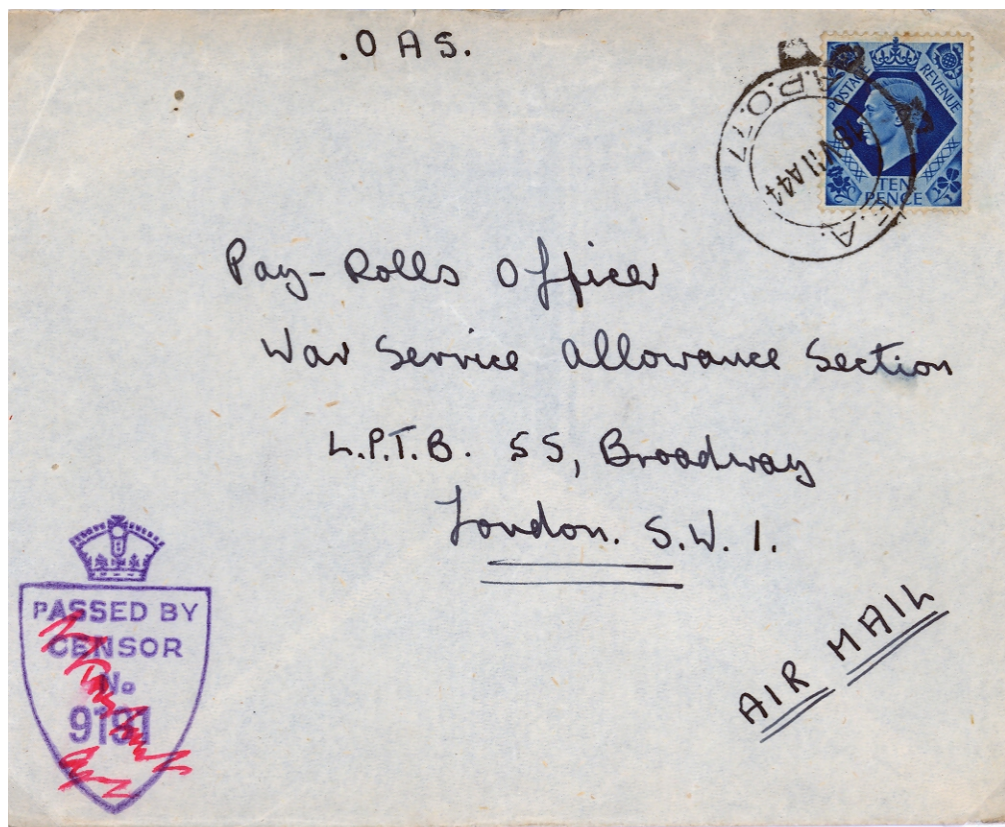 .O A S.
POSTAL REVENUE
TEN PENCE
A.P.O. 77
VII A44
E.A.
Pay-Rolls Officer
War Service Allowance Section
L.P.T.B. 55, Broadway
London. S.W. 1.
AIR MAIL
PASSED BY
CENSOR
No
9191